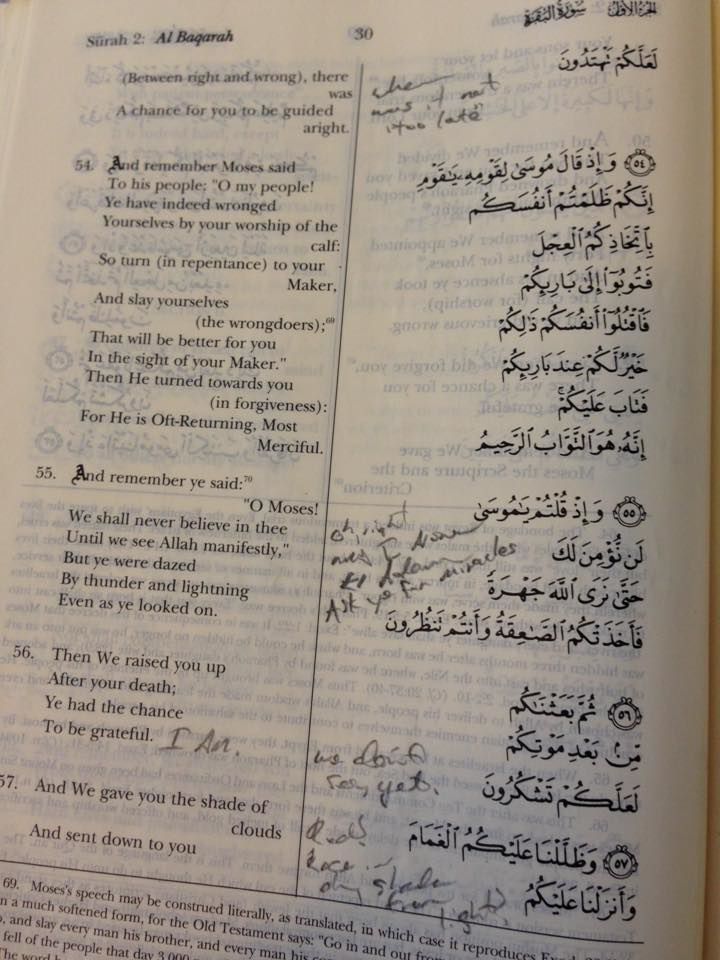 Sūrah 2: Al Baqarah
30
الجزء الأول
سورة البقرة
(Between right and wrong), there
was
A chance for you to be guided
aright.
when
was it not
too late
لَعَلَّكُمْ تَهْتَدُونَ
54. And remember Moses said
To his people: "O my people!
Ye have indeed wronged
Yourselves by your worship of the
calf:
So turn (in repentance) to your
Maker,
And slay yourselves
(the wrongdoers);69
That will be better for you
In the sight of your Maker."
Then He turned towards you
(in forgiveness):
For He is Oft-Returning, Most
Merciful.
٥٤ وَإِذْ قَالَ مُوسَىٰ لِقَوْمِهِ يَٰقَوْمِ
إِنَّكُمْ ظَلَمْتُمْ أَنفُسَكُم
بِاتِّخَاذِكُمُ الْعِجْلَ
فَتُوبُوٓا۟ إِلَىٰ بَارِئِكُمْ
فَاقْتُلُوٓا۟ أَنفُسَكُمْ ذَٰلِكُمْ
خَيْرٌ لَّكُمْ عِندَ بَارِئِكُمْ
فَتَابَ عَلَيْكُمْ
إِنَّهُ هُوَ التَّوَّابُ الرَّحِيمُ
55. And remember ye said:70
"O Moses!
We shall never believe in thee
Until we see Allah manifestly,"
But ye were dazed
By thunder and lightning
Even as ye looked on.
oh right
and I
Ask ye for miracles
٥٥ وَإِذْ قُلْتُمْ يَٰمُوسَىٰ
لَن نُّؤْمِنَ لَكَ
حَتَّىٰ نَرَى اللَّهَ جَهْرَةً
فَأَخَذَتْكُمُ الصَّٰعِقَةُ وَأَنتُمْ تَنظُرُونَ
56. Then We raised you up
After your death;
Ye had the chance
To be grateful.
I Am.
we don't
say yet.
٥٦ ثُمَّ بَعَثْنَٰكُم
مِّن بَعْدِ مَوْتِكُمْ
لَعَلَّكُمْ تَشْكُرُونَ
57. And We gave you the shade of
clouds
And sent down to you
٥٧ وَظَلَّلْنَا عَلَيْكُمُ الْغَمَامَ
وَأَنزَلْنَا عَلَيْكُمُ
69. Moses's speech may be construed literally, as translated, in which case it reproduces
n a much softened form, for the Old Testament says: "Go in and out from
, and slay every man his brother, and every man his
fell of the people that day 3,000
The word